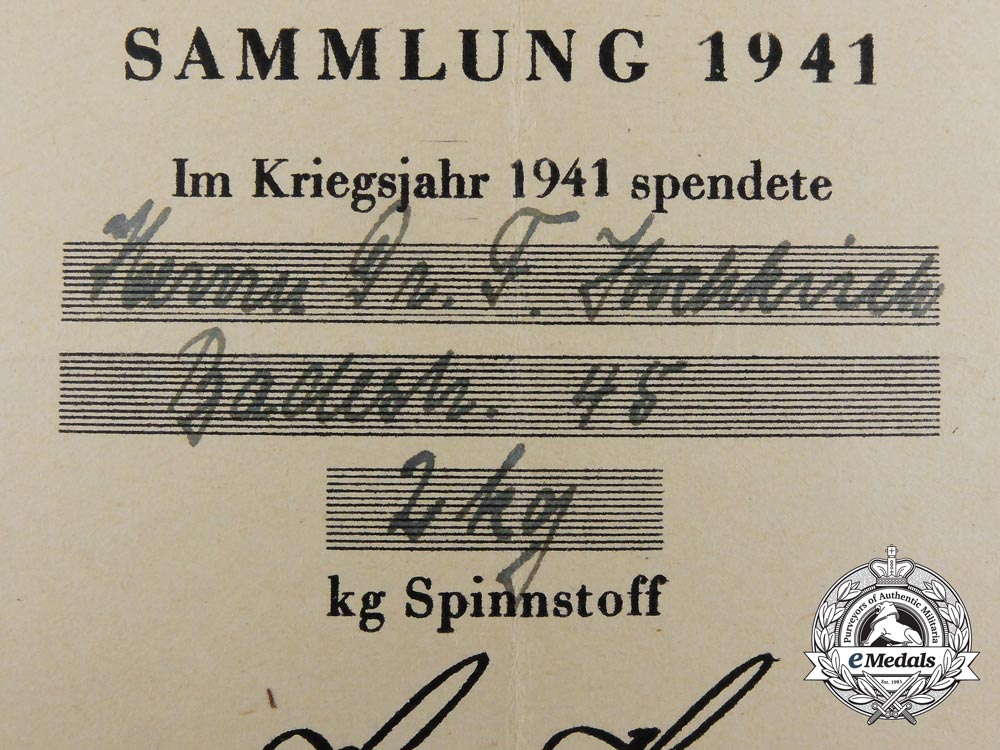 SAMMLUNG 1941
Im Kriegsjahr 1941 spendete
Herrn Dr. F. Hochkirch
Badestr. 45
2 kg
kg Spinnstoff
Purveyors of Authentic Militaria
eMedals
Est. 1981